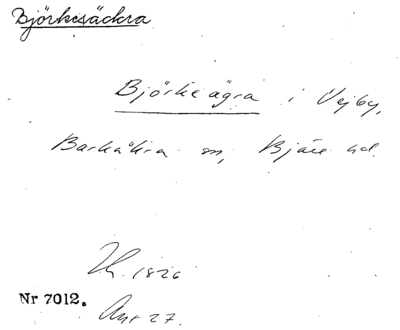 Björkesäckra
Björkeägra i Vejby,
Barkåkra sn, Bjäre hd.
Lh. 1826
Nr 7012. Akt 27.